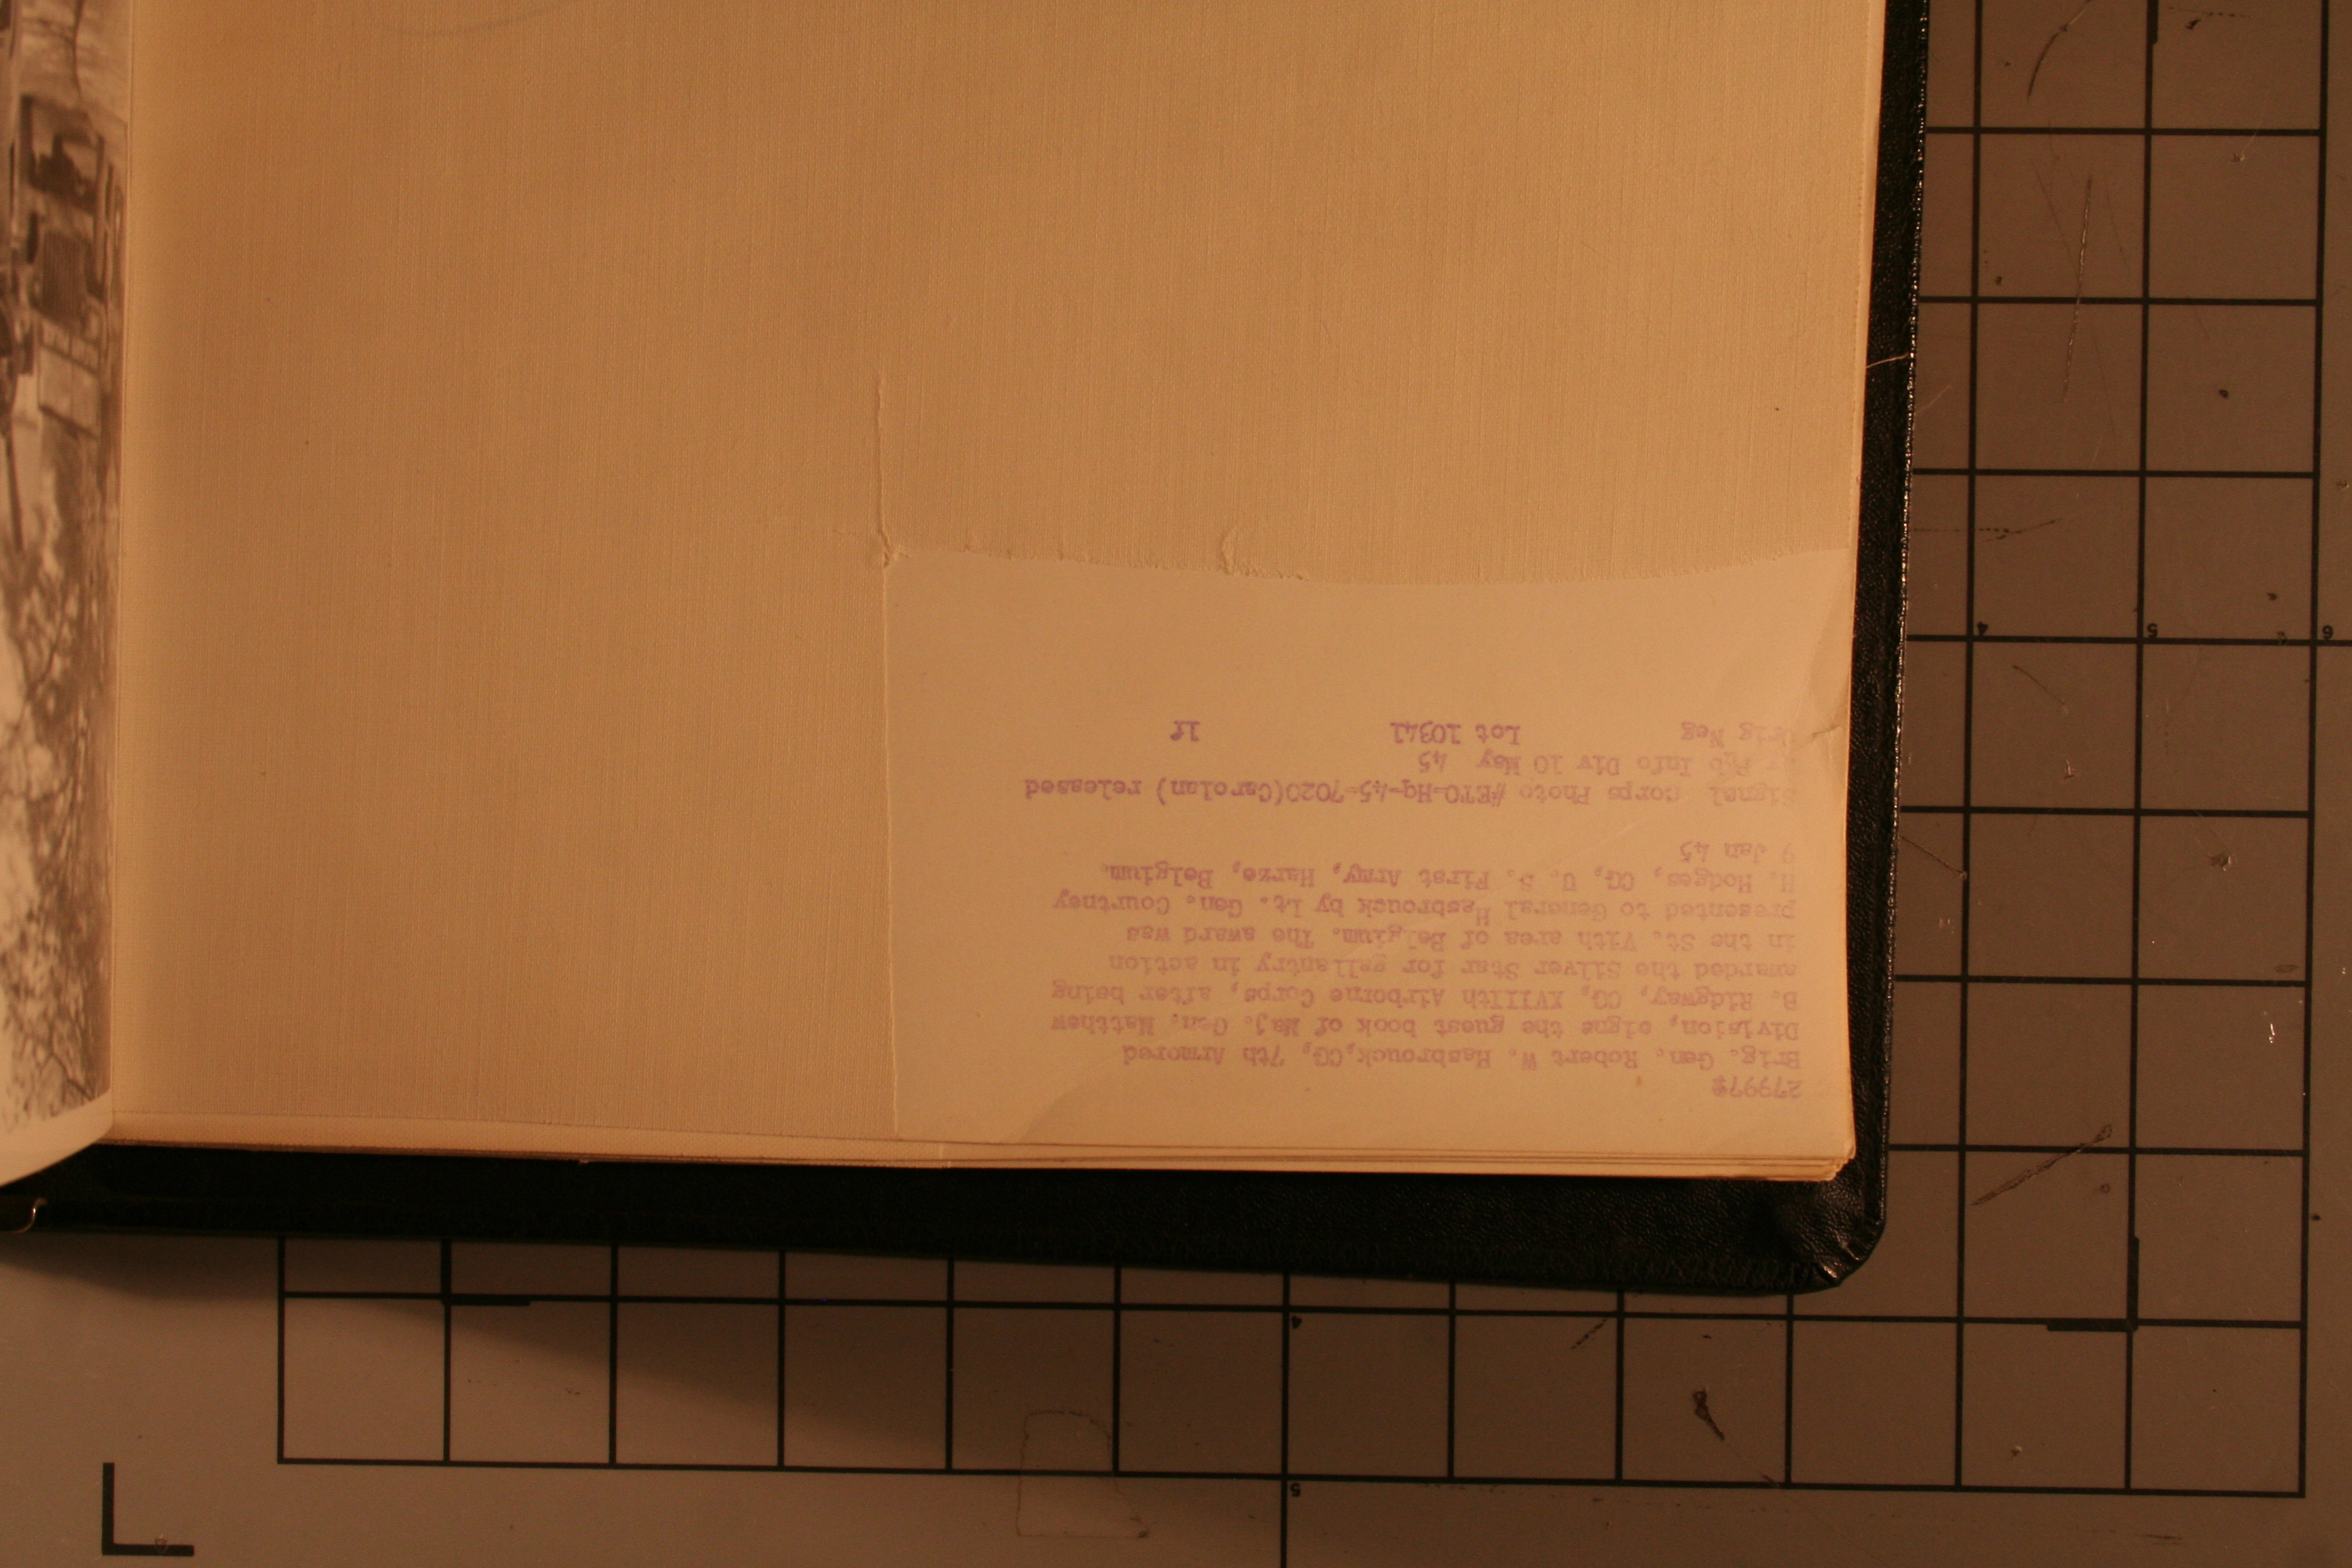 27997
Brig. Gen. Robert W. Hasbrouck,CG, 7th Armored
Division, signs the guest book of Maj. Gen. Matthew
B. Ridgway, CG, XVIIIth Airborne Corps, after being
awarded the Silver Star for gallantry in action
in the St. Vith area of Belgium. The award was
presented to General Hasbrouck by Lt. Gen. Courtney
H. Hodges, CG, U. S. First Army, Harze, Belgium.
9 Jan 45
Signal Corps Photo #ETO-Hq-45-7020(Carolan) released
Info Div 10 May 45
Orig Neg Lot 10341
4
5
6
4
5